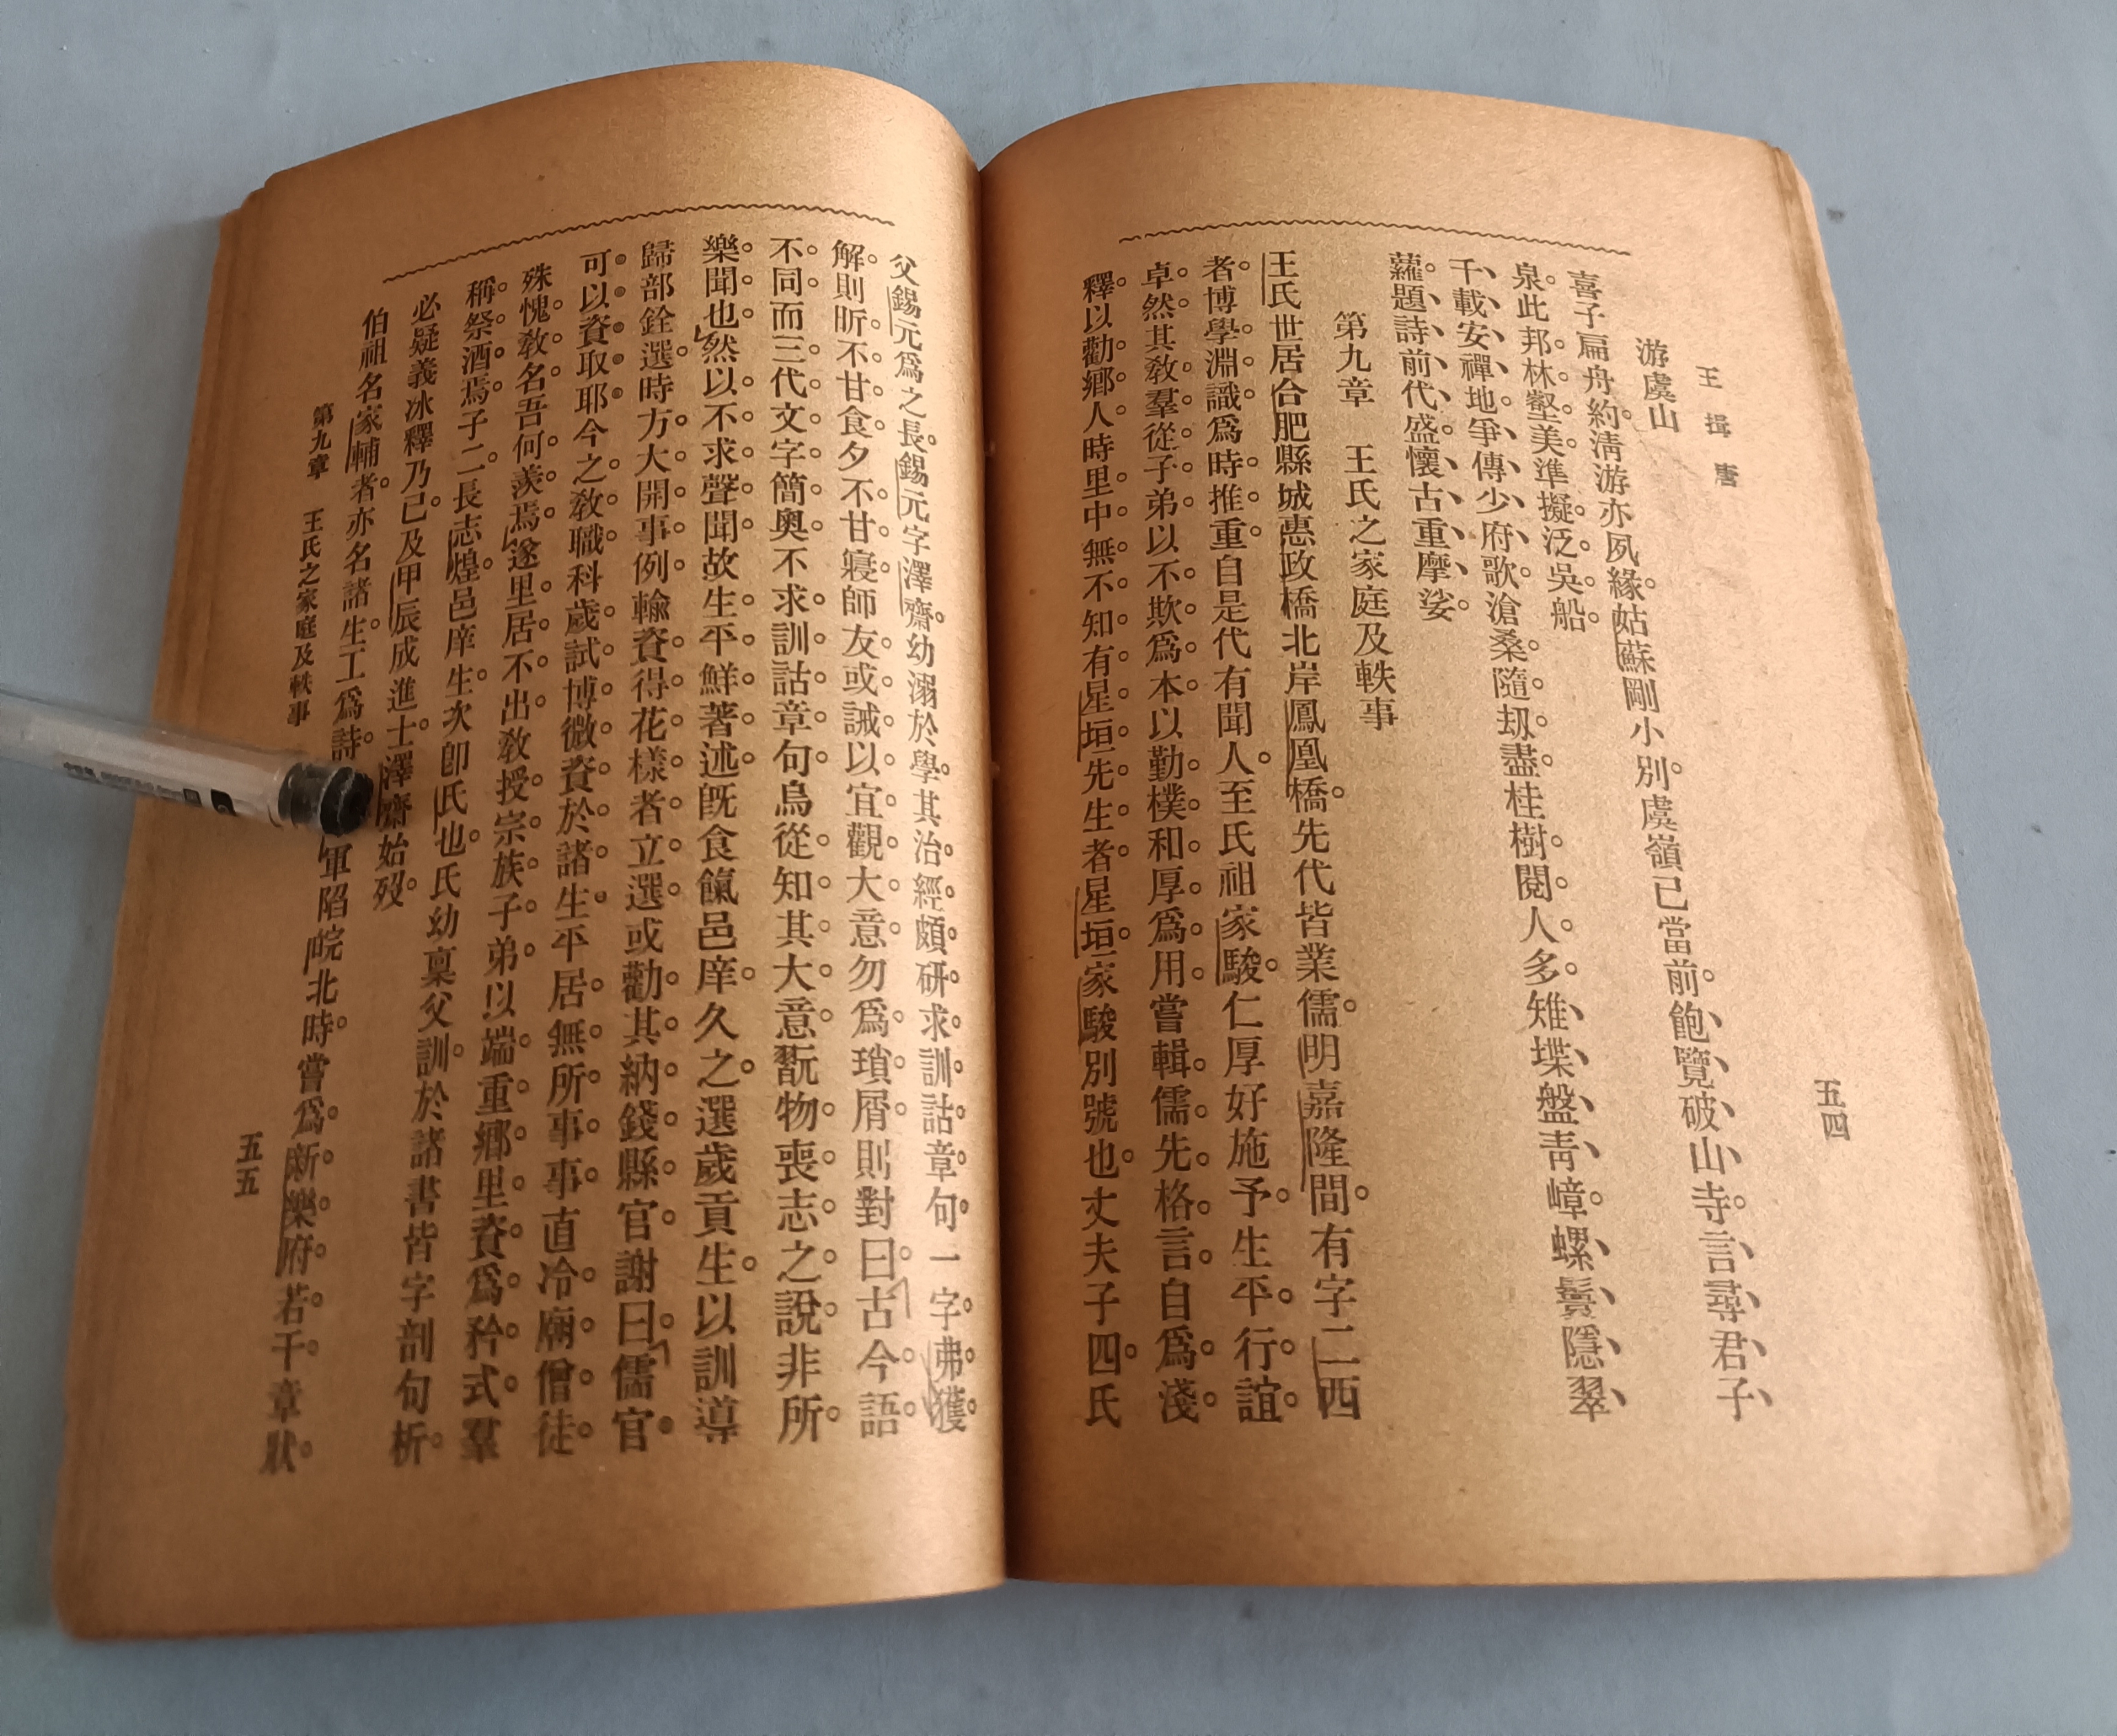 王揖唐
五四
游虞山
喜子扁舟約清游亦夙緣。姑蘇剛小別。虞嶺已當前。飽、覽、破、山、寺。言、尋、君、子、
泉。此邦林壑美。準擬泛吳船。
千、載、安、禪、地、爭、傳、少、府、歌。滄桑隨刼盡。桂樹閱人多。雉、堞、盤、靑、嶂。螺、鬟、隱、翠、
蘿。題、詩、前、代、盛、懷、古、重、摩、娑。
第九章　王氏之家庭及軼事
王氏世居合肥縣城惠政橋北岸鳳凰橋。先代皆業儒。明嘉隆間。有字二西
者。博學淵識。爲時推重。自是代有聞人。至氏祖家駿。仁厚好施予。生平行誼。
卓然。其敎羣從子弟。以不欺爲本。以勤樸和厚爲用。嘗輯儒先格言。自爲淺
釋。以勸鄉人。時里中無不知有星垣先生者。星垣。家駿別號也。丈夫子四。氏
父錫元爲之長。錫元字澤齋。幼溺於學。其治經。頗研求訓詁章句。一字弗獲
解。則昕不甘食。夕不甘寢。師友或誡以宜觀大意。勿爲瑣屑。則對曰。「古今語
不同。而三代文字簡奧。不求訓詁章句。烏從知其大意。翫物喪志之說。非所
樂聞也」。然以不求聲聞。故生平鮮著述。旣食餼邑庠。久之。選歲貢生。以訓導
歸部銓選。時方大開事例。輸資得花樣者立選。或勸其納錢縣官。謝曰。「儒官
可以資取耶。今之敎職。科歲試博微資於諸生。平居無所事事。直冷廟僧徒。
殊愧敎名。吾何羨焉」。遂里居不出。敎授宗族子弟。以端重鄉里。資爲矜式。羣
稱祭酒焉。子二。長志煌。邑庠生。次卽氏也。氏幼稟父訓。於諸書皆字剖句析。
必疑義冰釋乃已。及甲辰成進士。澤齋始歿。
伯祖名家輔者。亦名諸生。工爲詩。軍陷皖北時。嘗爲新樂府若干章。狀
第九章　王氏之家庭及軼事
五五